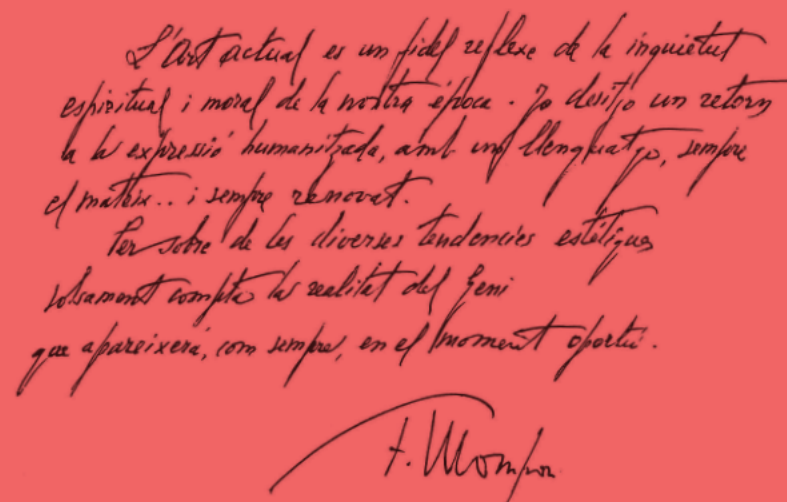 L'Art actual es un fidel reflexe de la inquietut
espiritual i moral de la nostra época. Jo desitjo un retorn
a la expressió humanitzada, amb un llenguatge, sempre
el mateix.. i sempre renovat.
Per sobre de les diverses tendencies estétiques
solsament compta la realitat del Geni
que apareixerá, com sempre, en el moment oportú.
F. Mompou